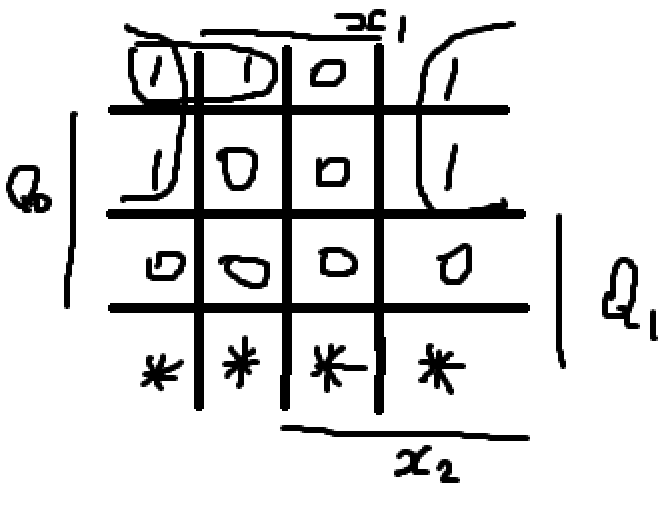 x₁
1 1 0 1
Q₀ 1 0 0 1
0 0 0 0 Q₁
* * * *
x₂